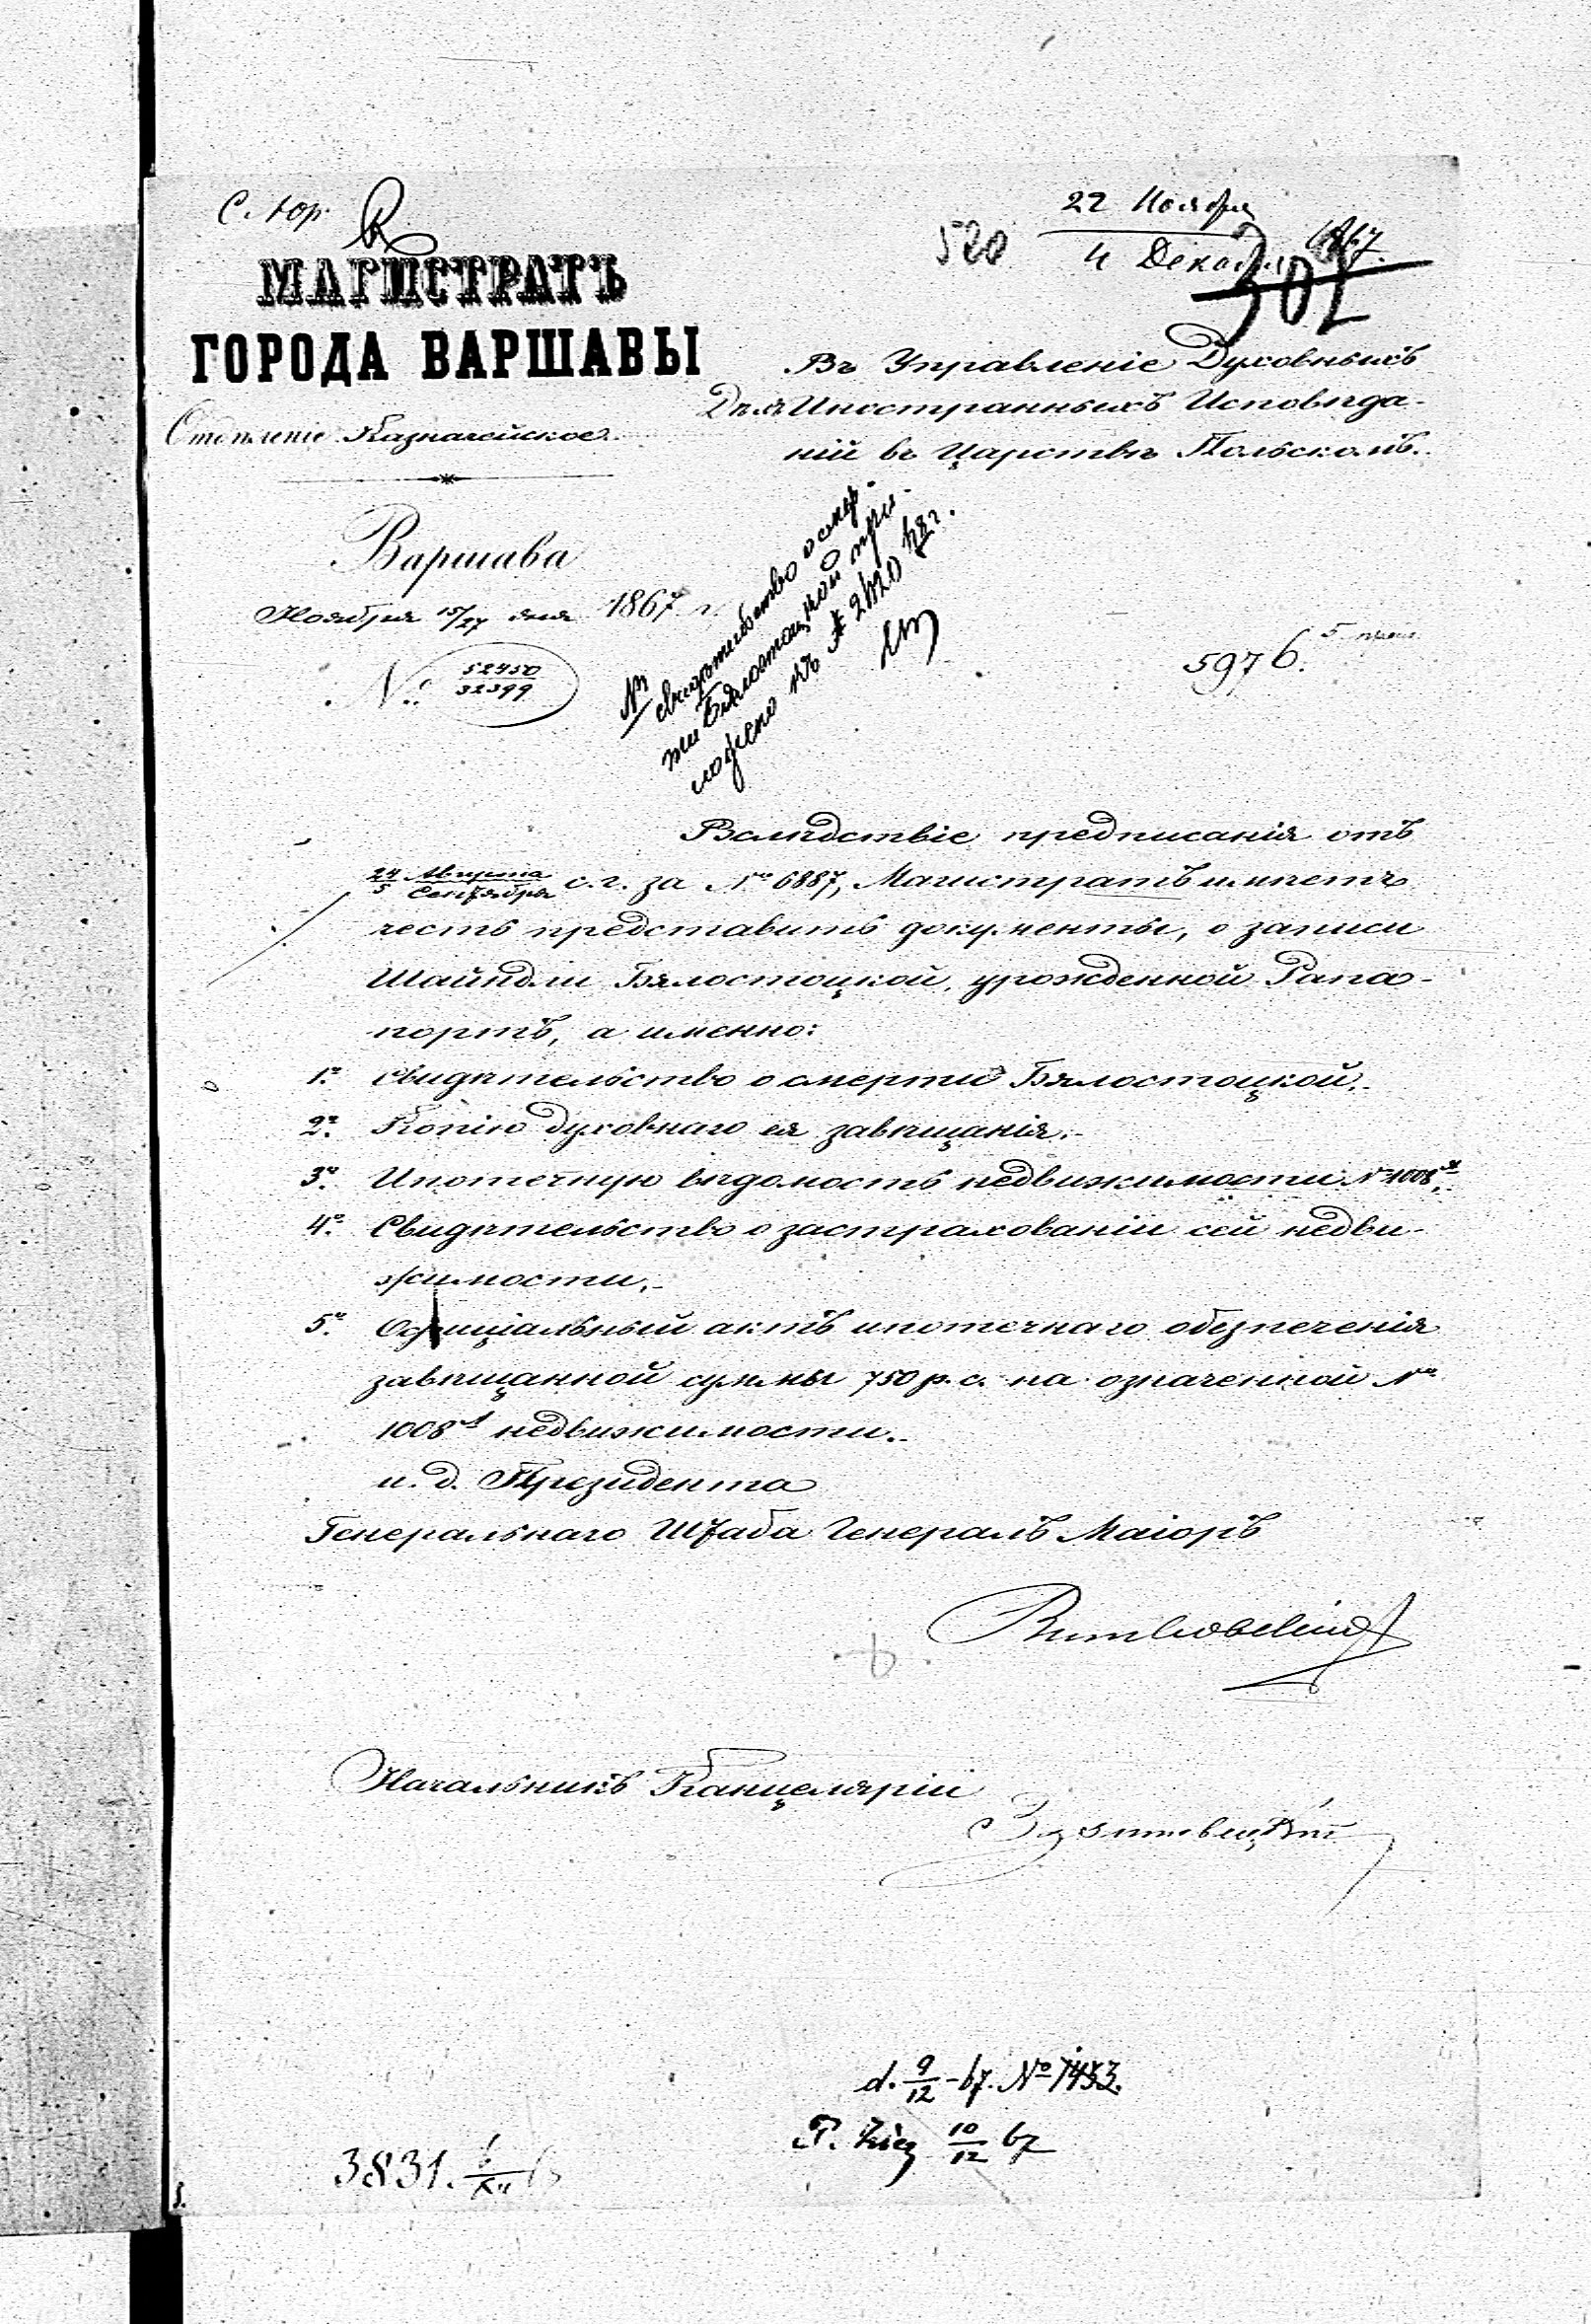 С. Юр.
22 Ноября
520
4 Декабря 1867.
302
МАГИСТРАТЪ
ГОРОДА ВАРШАВЫ
Въ Управленіе Духовныхъ
Дѣлъ Иностранныхъ Исповѣда-
ній въ Царствѣ Польскомъ.
Отдѣленіе Казначейское.
Варшава
Ноября 15/27 дня 1867 г.
№: 52450
32399
№
свидѣтельство о смер-
ти Бялостоцкой при-
ложено къ № 2420
5976.
5 прил.
Вслѣдствіе предписанія отъ
24 Августа
5 Сентября с. г. за № 6887, Магистратъ имѣетъ
честь представить документы, о записи
Шайндли Бялостоцкой, урожденной Рапа-
портъ, а именно:
1. Свидѣтельство о смерти Бялостоцкой.
2. Копію духовнаго ея завѣщанія.
3. Ипотечную вѣдомость недвижимости №1008 А
4. Свидѣтельство о застрахованіи сей недви-
жимости.
5. Офиціальный актъ ипотечнаго обезпеченія
завѣщанной суммы 750 р. с. на означенной №
1008 А недвижимости.
и. д. Президента
Генеральнаго Штаба Генералъ Маіоръ
Витковскій
Начальникъ Канцеляріи
d. 9/12 -67. № 7453.
10/12 67
3831. 6/XII